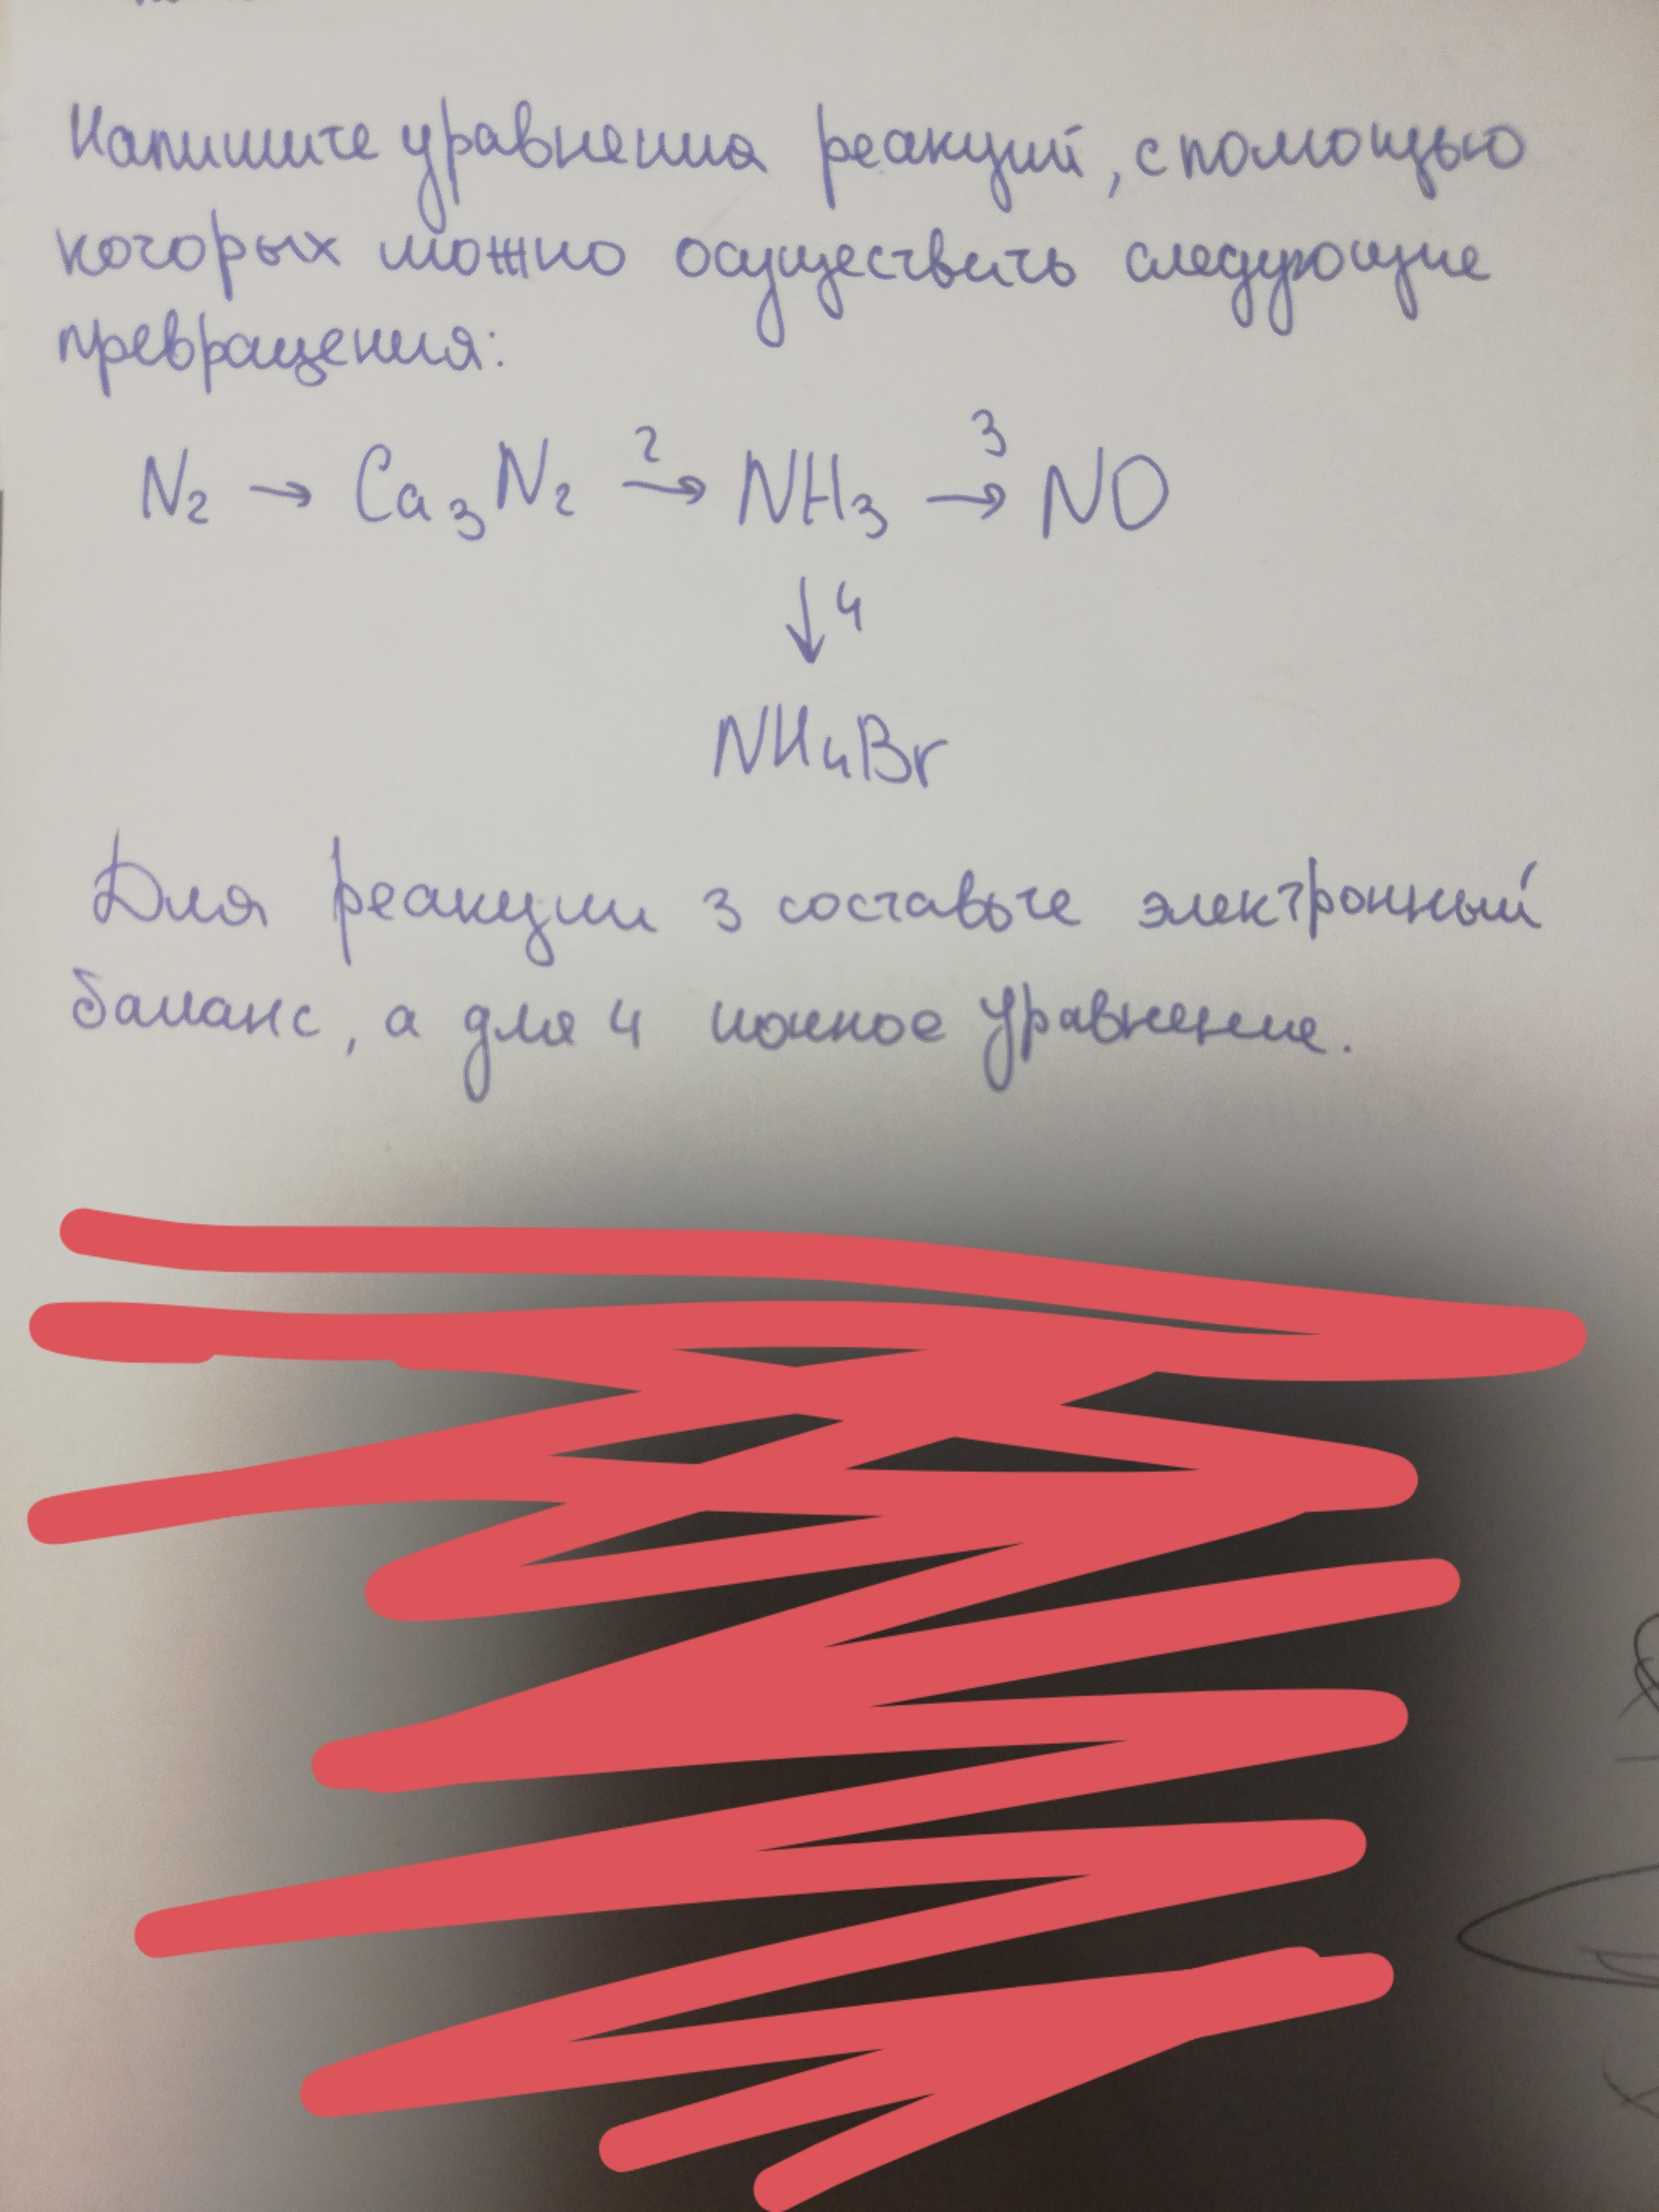 Напишите уравнения реакций, с помощью
которых можно осуществить следующие
превращения:
N₂ → Ca₃N₂ →² NH₃ →³ NO
↓ 4
NH₄Br
Для реакции 3 составьте электронный
баланс, а для 4 ионное уравнение.